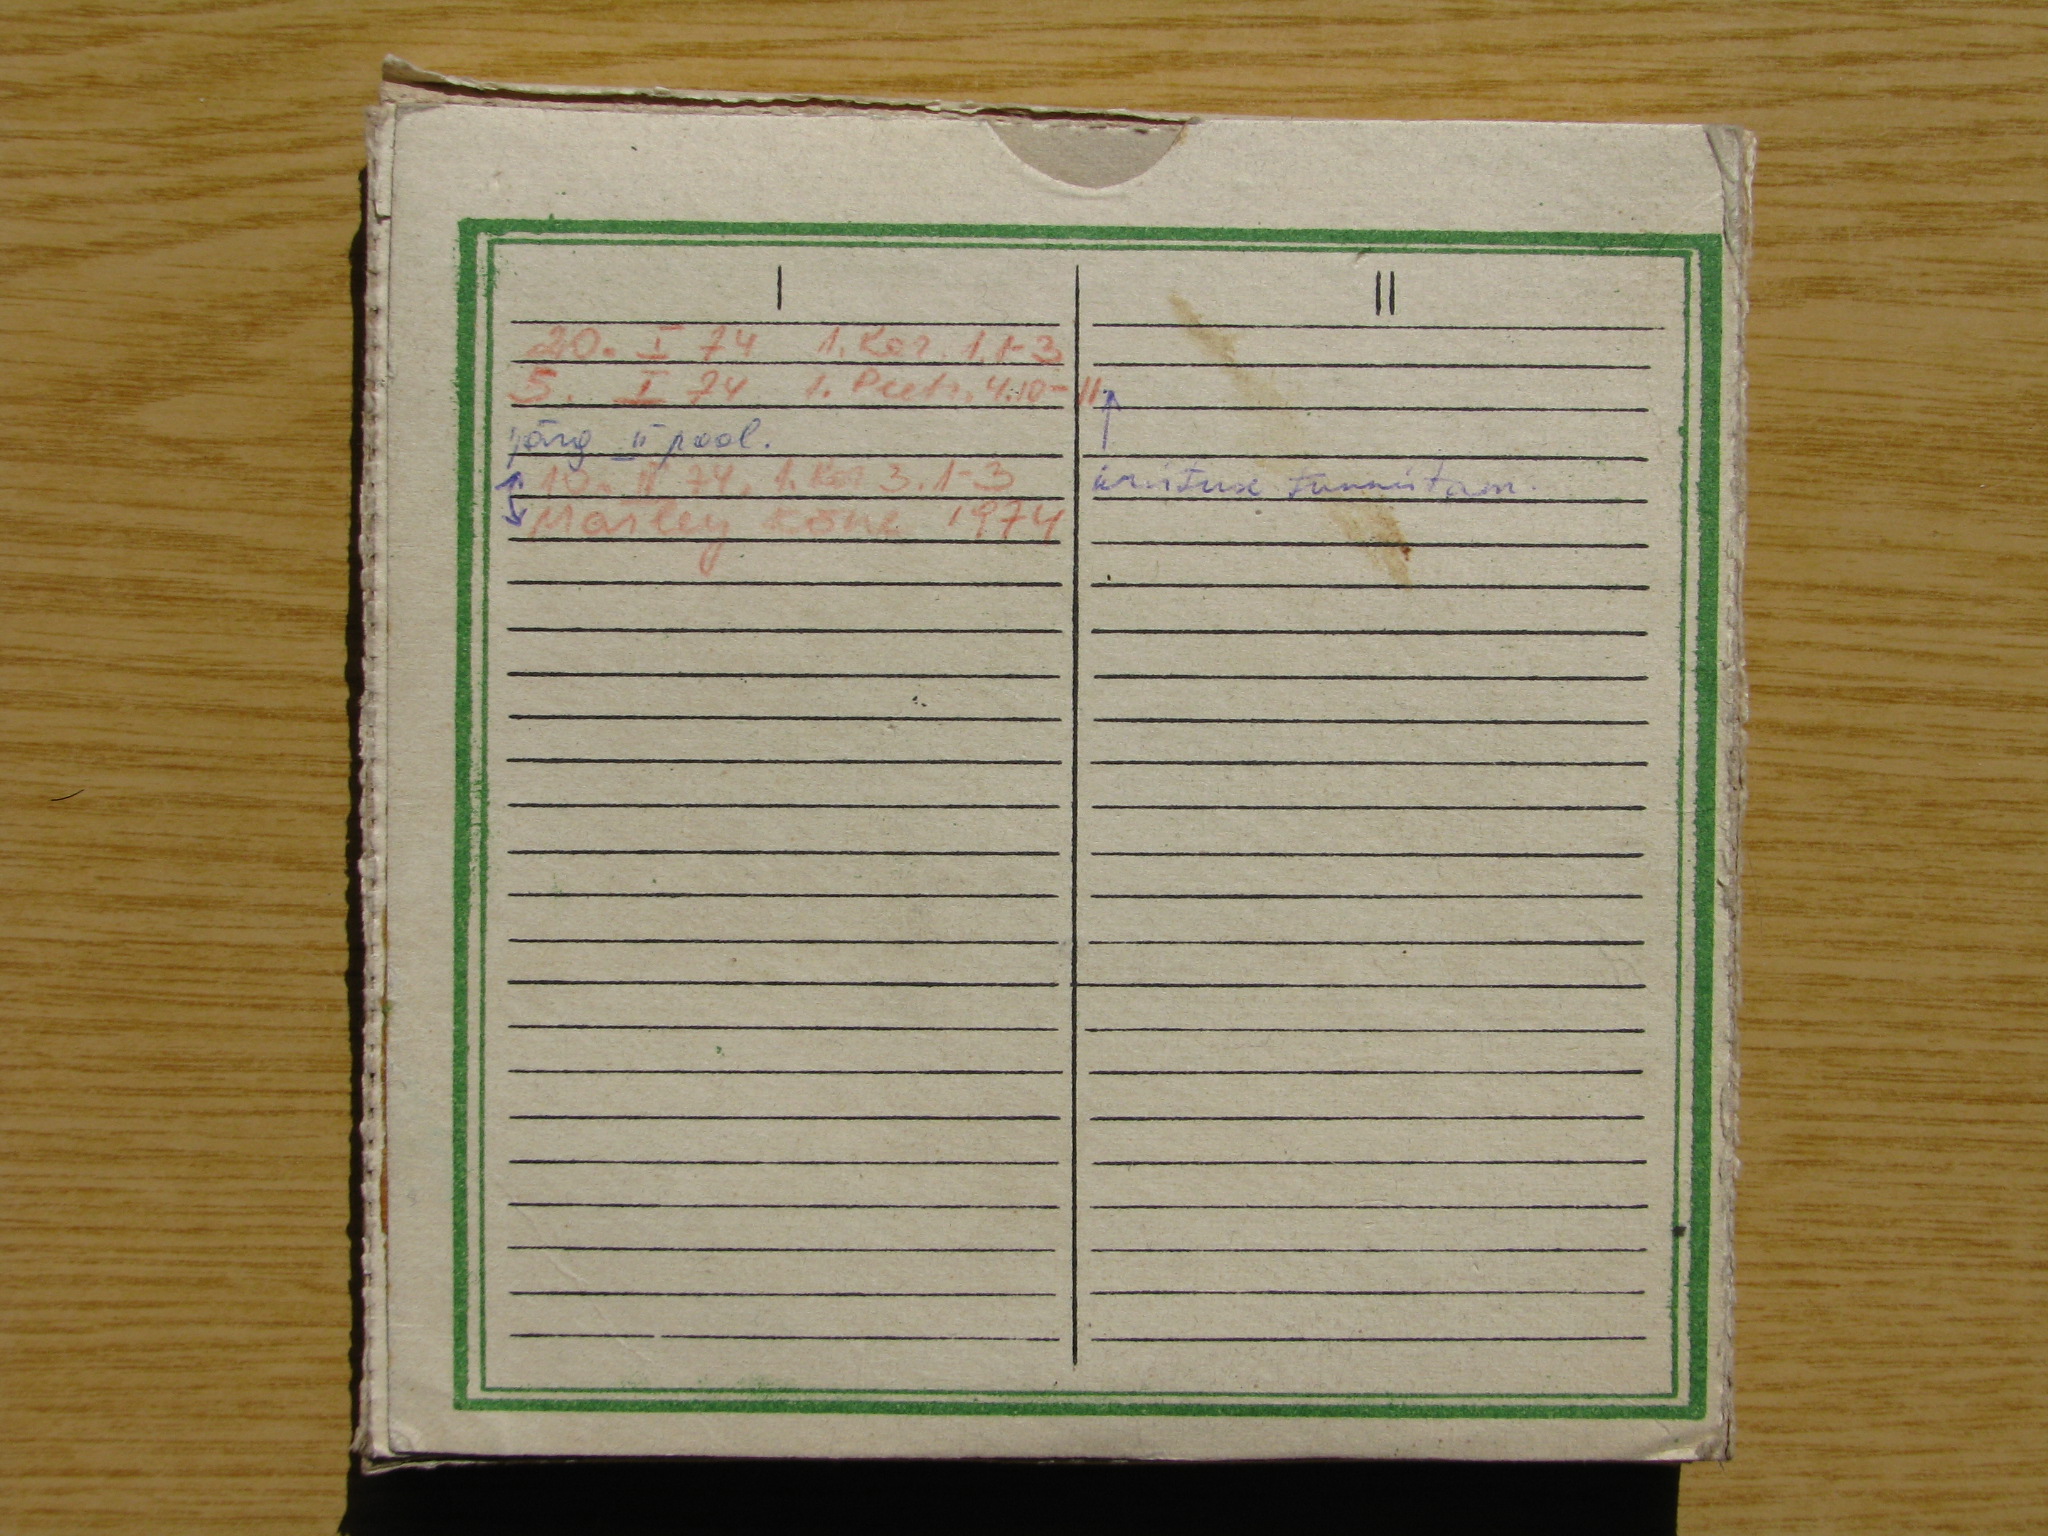 I
II
20. I 74 1. Kor. 1.1-3
5. I 74 1. Peetr. 4.10-11.
järg II pool.
10. II 74. 1. Kor 3.1-3
kõne 1974
tunnistam.